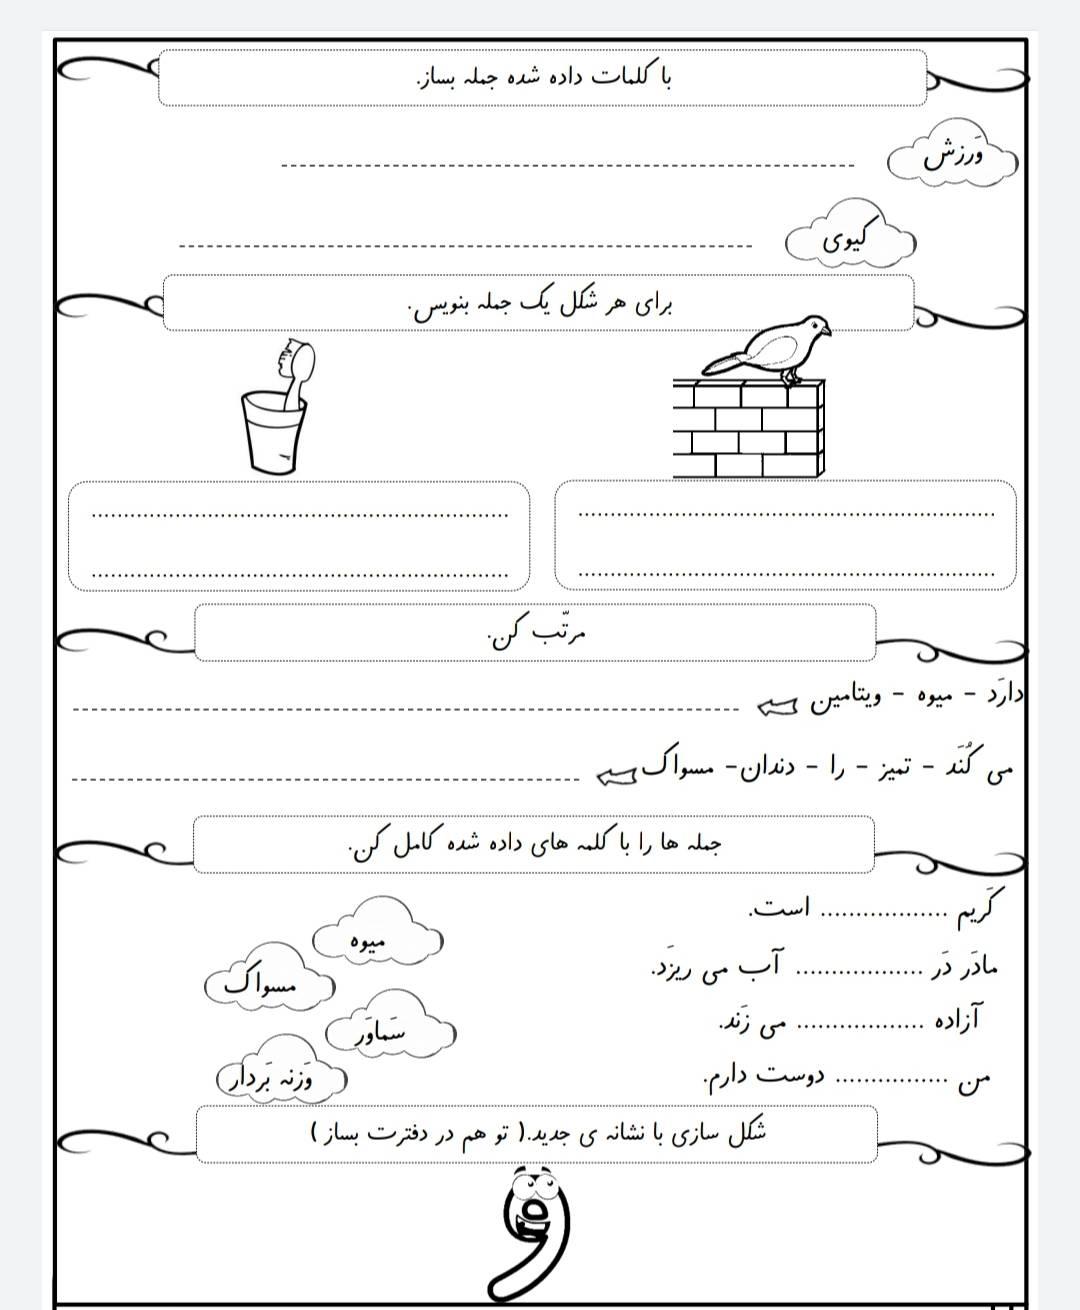 با کلمات داده شده جمله بساز.
وَرزش
کیوی
برای هر شکل یک جمله بنویس.
مرتّب کن.
دارَد - میوه - ویتامین
می کُنَد - تمیز - را - دندان- مسواک
جمله ها را با کلمه های داده شده کامل کن.
کَریم .................. است.
مادَر دَر .................. آب می ریزَد.
آزاده .................. می زَند.
من ................ دوست دارم.
میوه
مسواک
سَماوَر
وَزنه بَردار
شکل سازی با نشانه ی جدید.( تو هم در دفترت بساز )
و